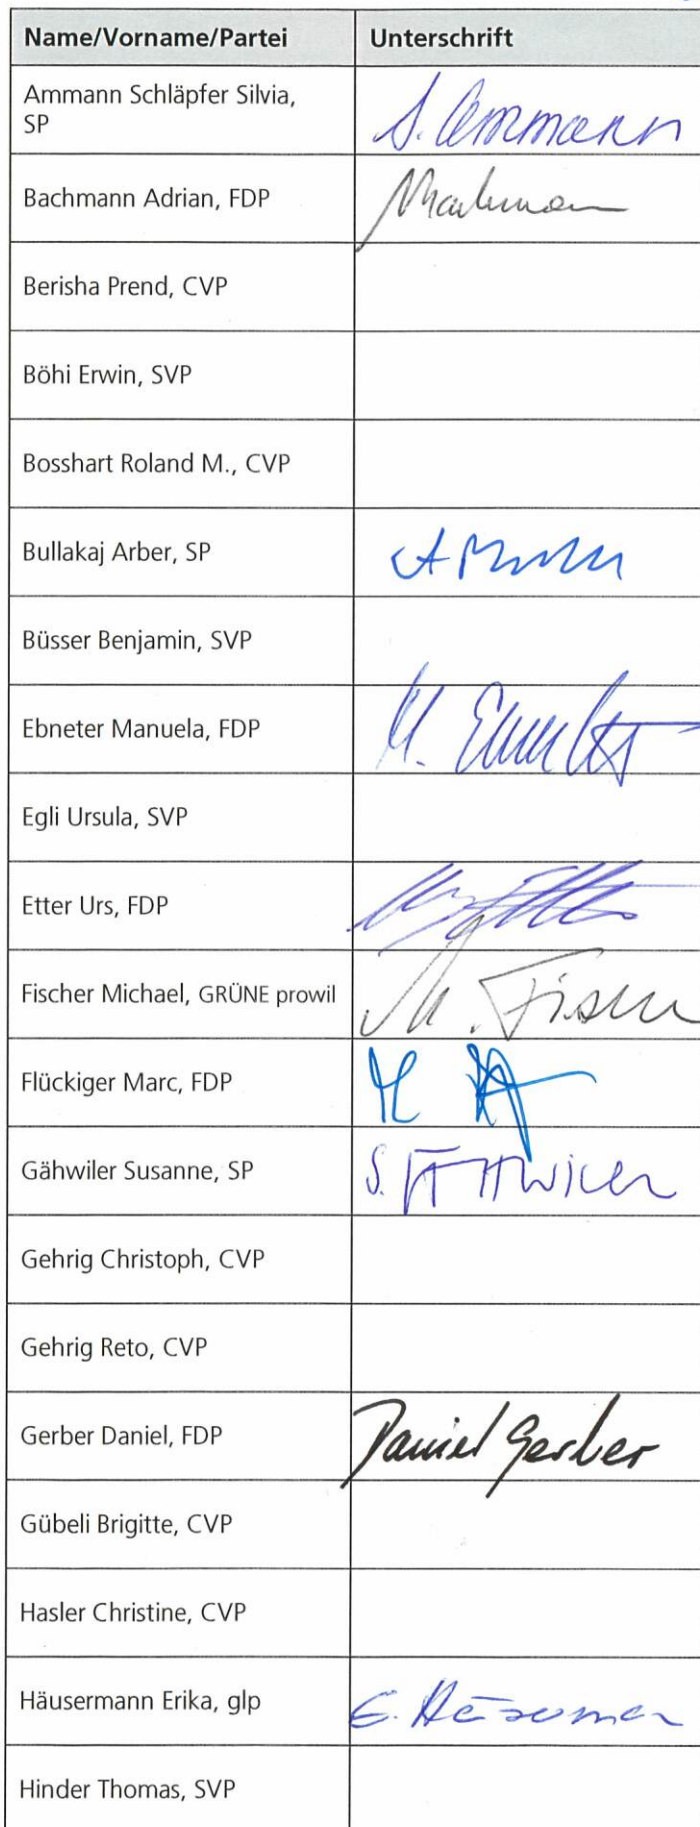 Name/Vorname/Partei Unterschrift
Ammann Schläpfer Silvia,
SP S. Ammann
Bachmann Adrian, FDP
Berisha Prend, CVP
Böhi Erwin, SVP
Bosshart Roland M., CVP
Bullakaj Arber, SP
Büsser Benjamin, SVP
Ebneter Manuela, FDP
Egli Ursula, SVP
Etter Urs, FDP
Fischer Michael, GRÜNE prowil M. Fischer
Flückiger Marc, FDP
Gähwiler Susanne, SP
Gehrig Christoph, CVP
Gehrig Reto, CVP
Gerber Daniel, FDP Daniel Gerber
Gübeli Brigitte, CVP
Hasler Christine, CVP
Häusermann Erika, glp
Hinder Thomas, SVP